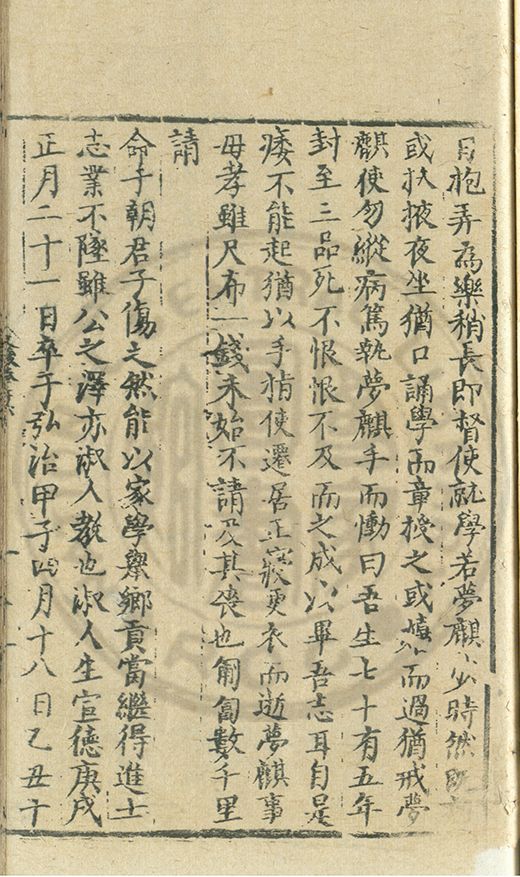 日抱弄為樂稍長即督使就學若夢麒少時然既
或扶掖夜坐猶口誦學而章授之或嬉而過猶戒夢
麒使勿縱病篤執夢麒手而慟曰吾生七十有五年
封至三品死不恨恨不及而之成以畢吾志耳自是
痿不能起猶以手指使遷居正寢更衣而逝夢麒事
母孝雖尺布一錢未始不請及其喪也匍匐數千里
請
命于朝君子傷之然能以家學舉鄉貢當繼得進士
志業不墜雖公之澤亦淑人教也淑人生宣德庚戌
正月二十一日卒于弘治甲子四月十八日乙丑十